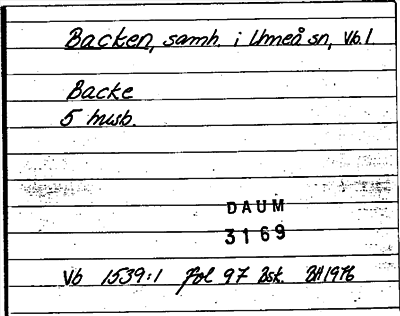 Backen, samh. i Umeå sn, Vb.1
Backe
5 husb.
DAUM
3169
Vb 1539:1 fol 97 Bsk. BH1976